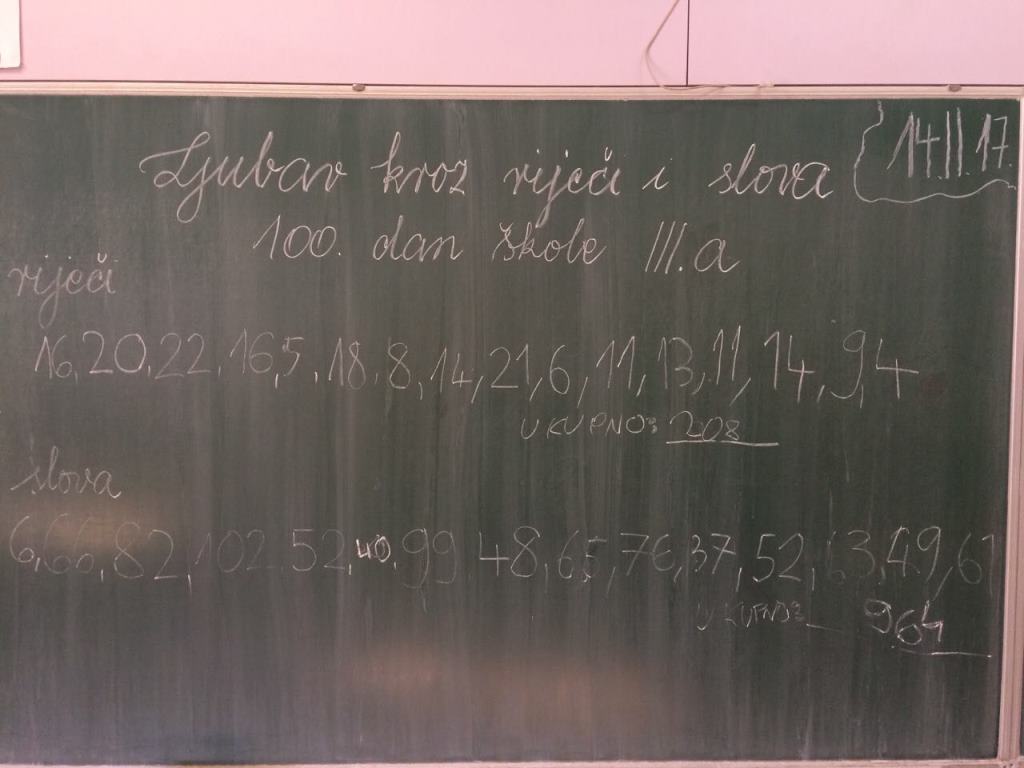 Ljubav kroz riječi i slova
14.II.17.
100. dan škole III.a
riječi
16, 20, 22, 16, 5, 18, 8, 14, 21, 6, 11, 13, 11, 14, 9, 4
UKUPNO: 208
slova
6, 66, 82, 102, 52, 40, 99 48, 65, 76, 37, 52, 63, 49, 61
UKUPNO: 964